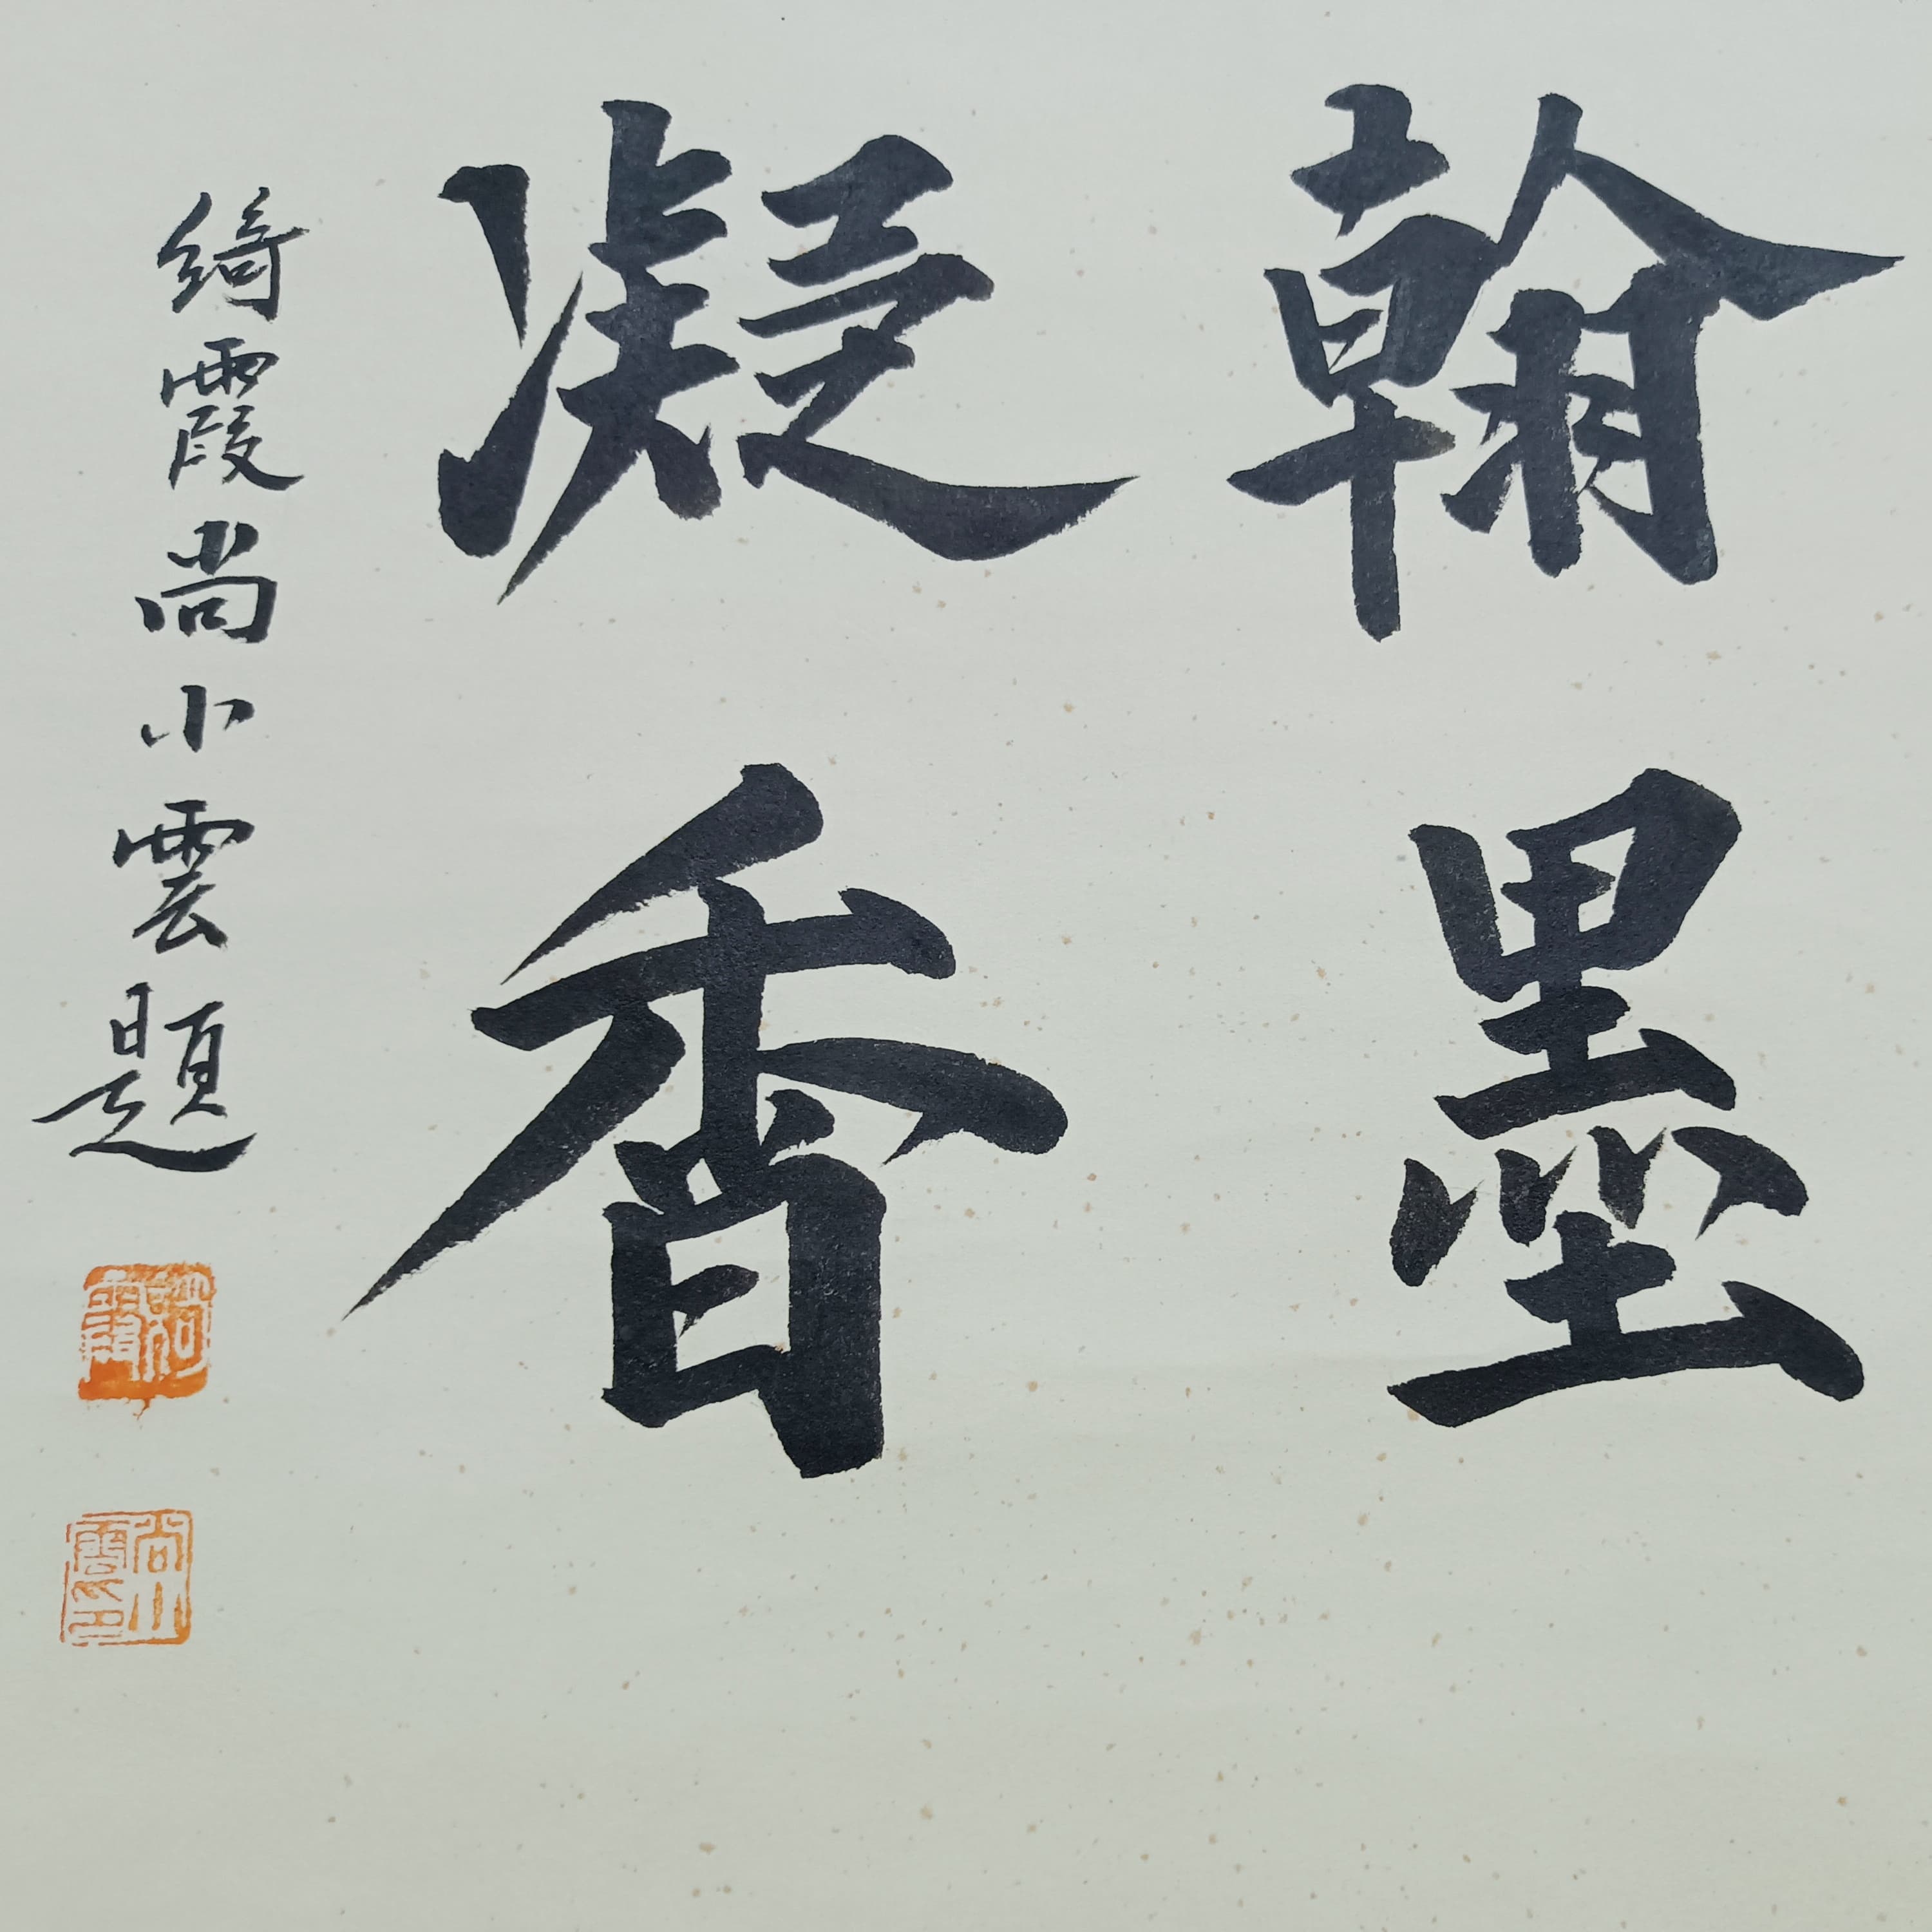 翰墨
凝香
綺霞尚小雲題
綺霞
尚小雲印